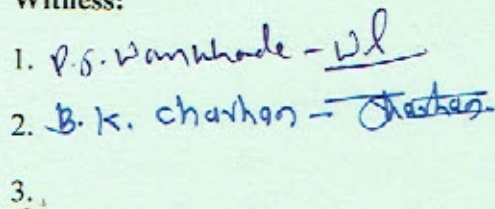 Witness:
1. P.S. Wankhade - 
2. B.K. Chavhan - Chavhan.
3.